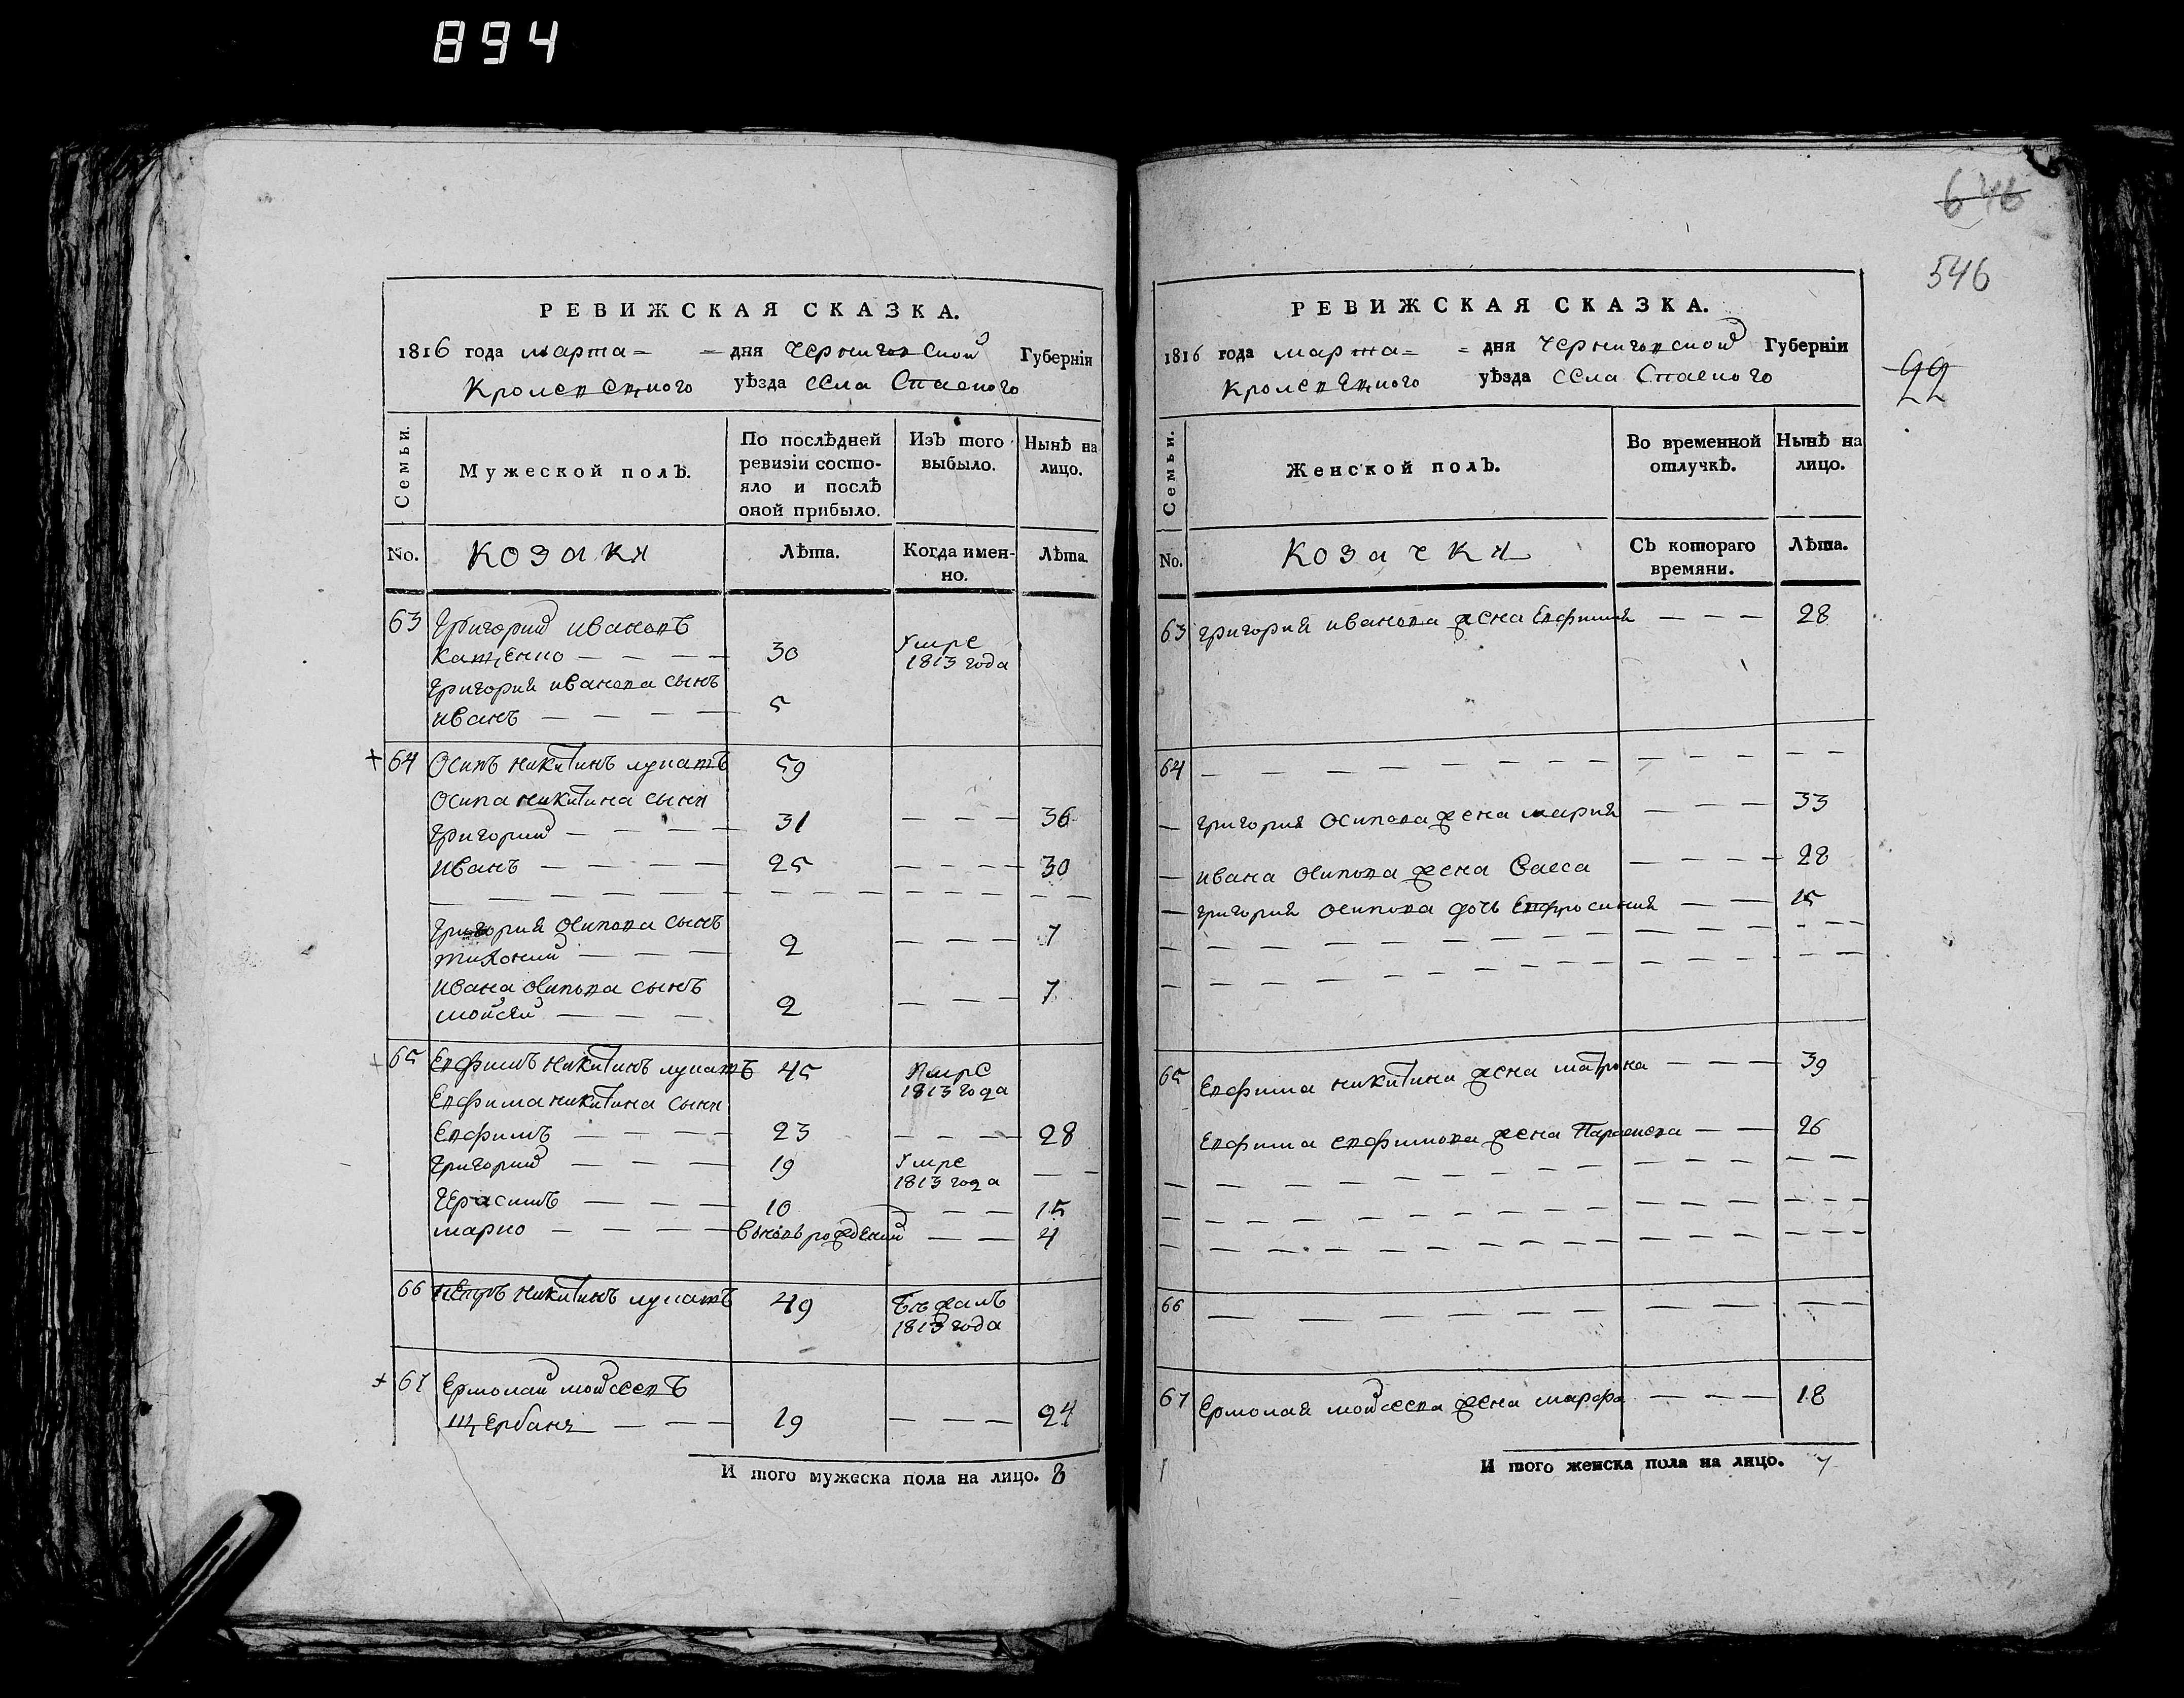 894
РЕВИЖСКАЯ СКАЗКА.
1816 года марта = = дня Черниговской Губерніи
Кролевецкого уѣзда села Спаского
Семьи.
Мужеской полъ.
По послѣдней ревизіи состо-
яло и послѣ
оной прибыло.
Изъ того выбыло.
Нынѣ на лицо.
No.
Козаки
Лѣта.
Когда имен-
но.
Лѣта.
63 Григорий ивановъ
— — — — 30 Умре 1813 года
Григория иванова сынъ
иванъ — — — — 5
+ 64 Осипъ никитинъ лупатъ 59
Осипа никитина сыны
Григорий — — — — 31 — — — 36
иванъ — — — — 25 — — — — 30
Григория Осипова сынъ
тихоний — — — 2 — — — 7
ивана Осипова сынъ
мойсей — — — 2 — — — 7
+ 65 Евфимъ никитинъ лупатъ 45 Умре 1813 года
Евфима никитина сыны
Евфимъ — — — — 23 — — — — 28
Григорий — — — — 19 Умре 1813 года — —
Герасимъ — — — — 10 — — — 15
марко — — — — вновь рожденый — — 4
66 Петръ никитинъ лупатъ 49 Бѣжалъ 1813 года
+ 67 Ермолай мойсеевъ
— — — 19 — — — 24
И того мужеска пола на лицо. 8
646
546
22
РЕВИЖСКАЯ СКАЗКА.
1816 года марта = = дня Черниговской Губерніи
Кролевецкого уѣзда села Спаского
Семьи.
Женской полъ.
Во временной отлучкѣ.
Нынѣ на лицо.
No.
Козачки
Съ котораго
времяни.
Лѣта.
63 григория иванова жена Евфимия — — — 28
64 — — — — — — — — — — — — — —
— григория Осипова жена мария — — — 33
— ивана Осипова жена Васса — — — — 28
— григория Осипова дочь Евфросиния — — 15
65 Евфима никитина жена матрона — — — 39
Евфима евфимова жена Параскева — — 26
66 — — — — — — — — — — —
67 Ермолая мойсеева жена марфа — — — 18
И того женска пола на лицо. 7